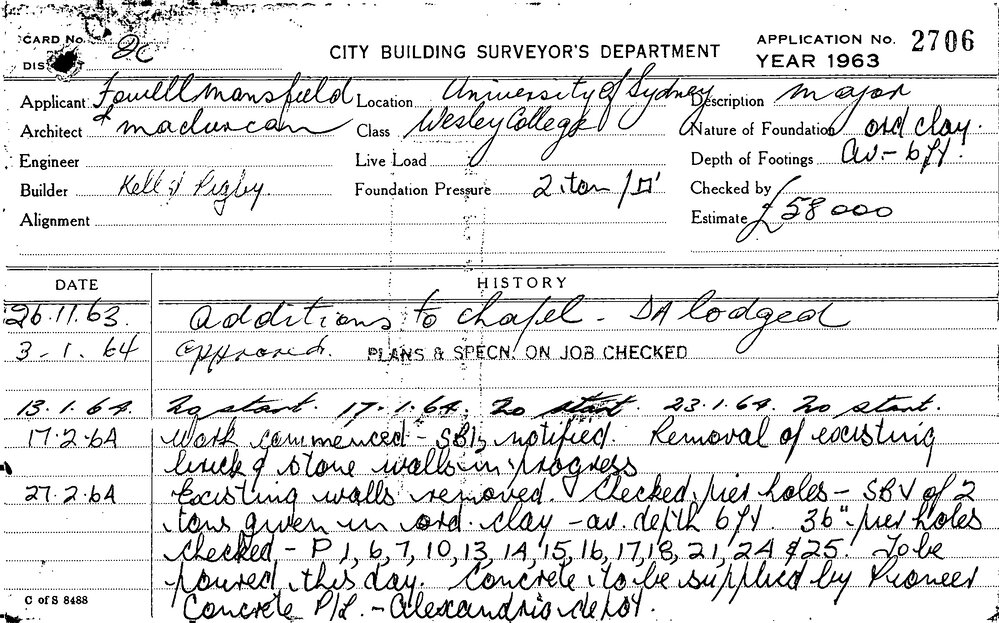 CARD No. 2C
CITY BUILDING SURVEYOR'S DEPARTMENT
APPLICATION No. 2706
YEAR 1963
Applicant Fowell Mansfield
Location University of Sydney
Description major
Architect & Maclurcan
Class Wesley College
Nature of Foundation ord clay.
Engineer
Live Load
Depth of Footings av.- 6 ft.
Builder Kell & Rigby.
Foundation Pressure 2 ton/□'
Checked by
Alignment
Estimate £58 000
DATE HISTORY
26.11.63. additions to chapel - DA lodged
3-1.64 approved. PLANS & SPECN. ON JOB CHECKED
13.1.64. No start. 17.1.64. No start. 23.1.64. No start.
17.2.64 Work commenced - SBI, notified. Removal of existing
brick & stone walls in progress
27.2.64 Existing walls removed. Checked pier holes - SBV of 2
tons given in ord. clay - av. depth 6 ft. 36" pier holes
checked - P 1, 6, 7, 10, 13, 14, 15, 16, 17, 18, 21, 24 & 25. To be
poured this day. Concrete to be supplied by Pioneer
Concrete P/L. - Alexandria depot.
C of S 8488